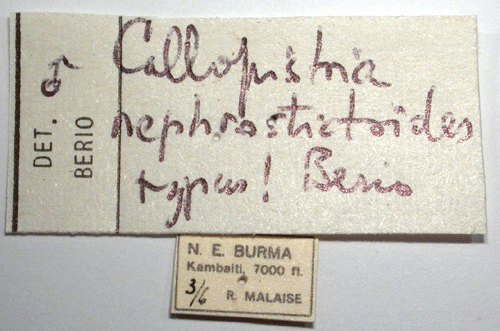 ♂
DET.
BERIO
Callopistria
nephrostictoides
typus! Berio
N. E. BURMA
Kambaiti, 7000 ft.
3/6 R. MALAISE